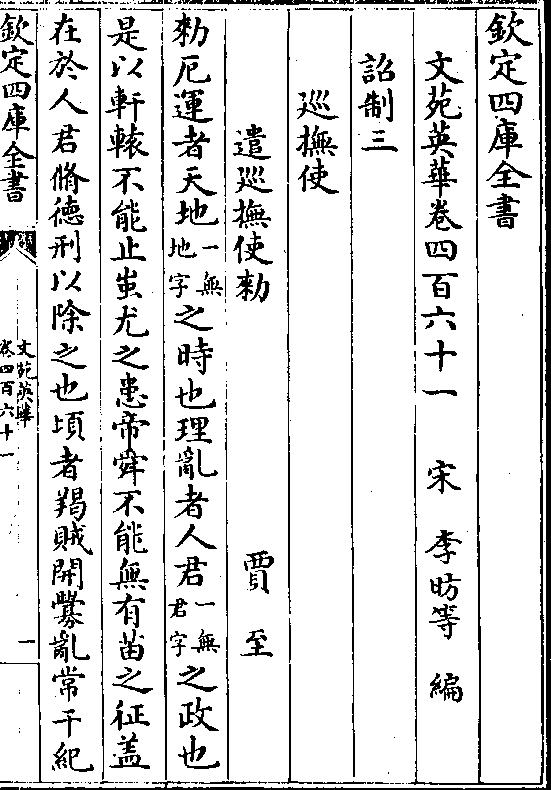 欽定四庫全書
文苑英華卷四百六十一 宋 李昉等 編
詔制三
巡撫使
遣巡撫使勑 賈至
勑厄運者天地一無地字之時也理亂者人君一無君字之政也
是以軒轅不能止蚩尤之患帝舜不能無有苗之征盖
在於人君脩德刑以除之也頃者羯賊開釁亂常干紀
欽定四庫全書
文苑英華
卷四百六十一
一